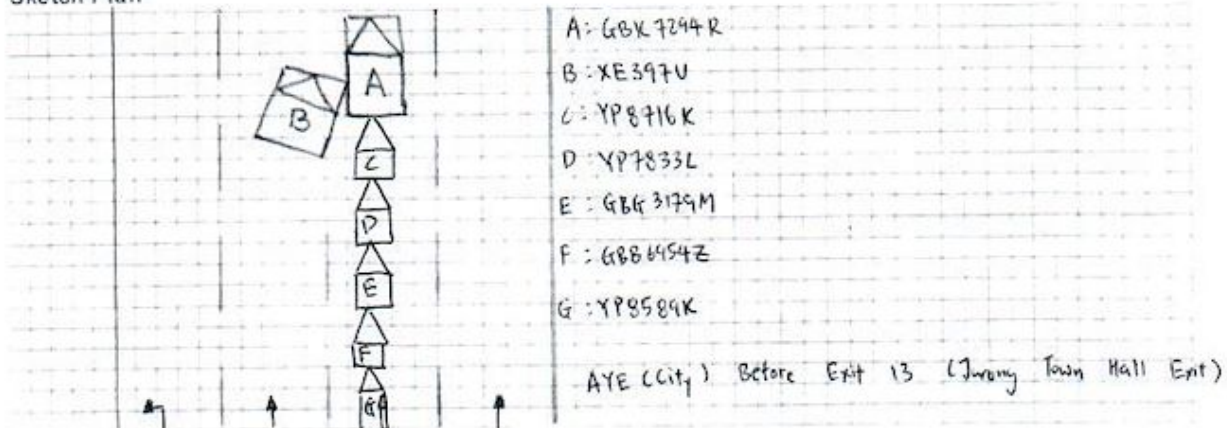 Sketch Plan
A: GBK 7294R
B: XE397U
C: YP8716K
D: YP7833L
E: GBG 3179M
F: GBB6954Z
G: YP8589K
AYE (City) Before Exit 13 (Jurong Town Hall Exit)
A
B
C
D
E
F
G